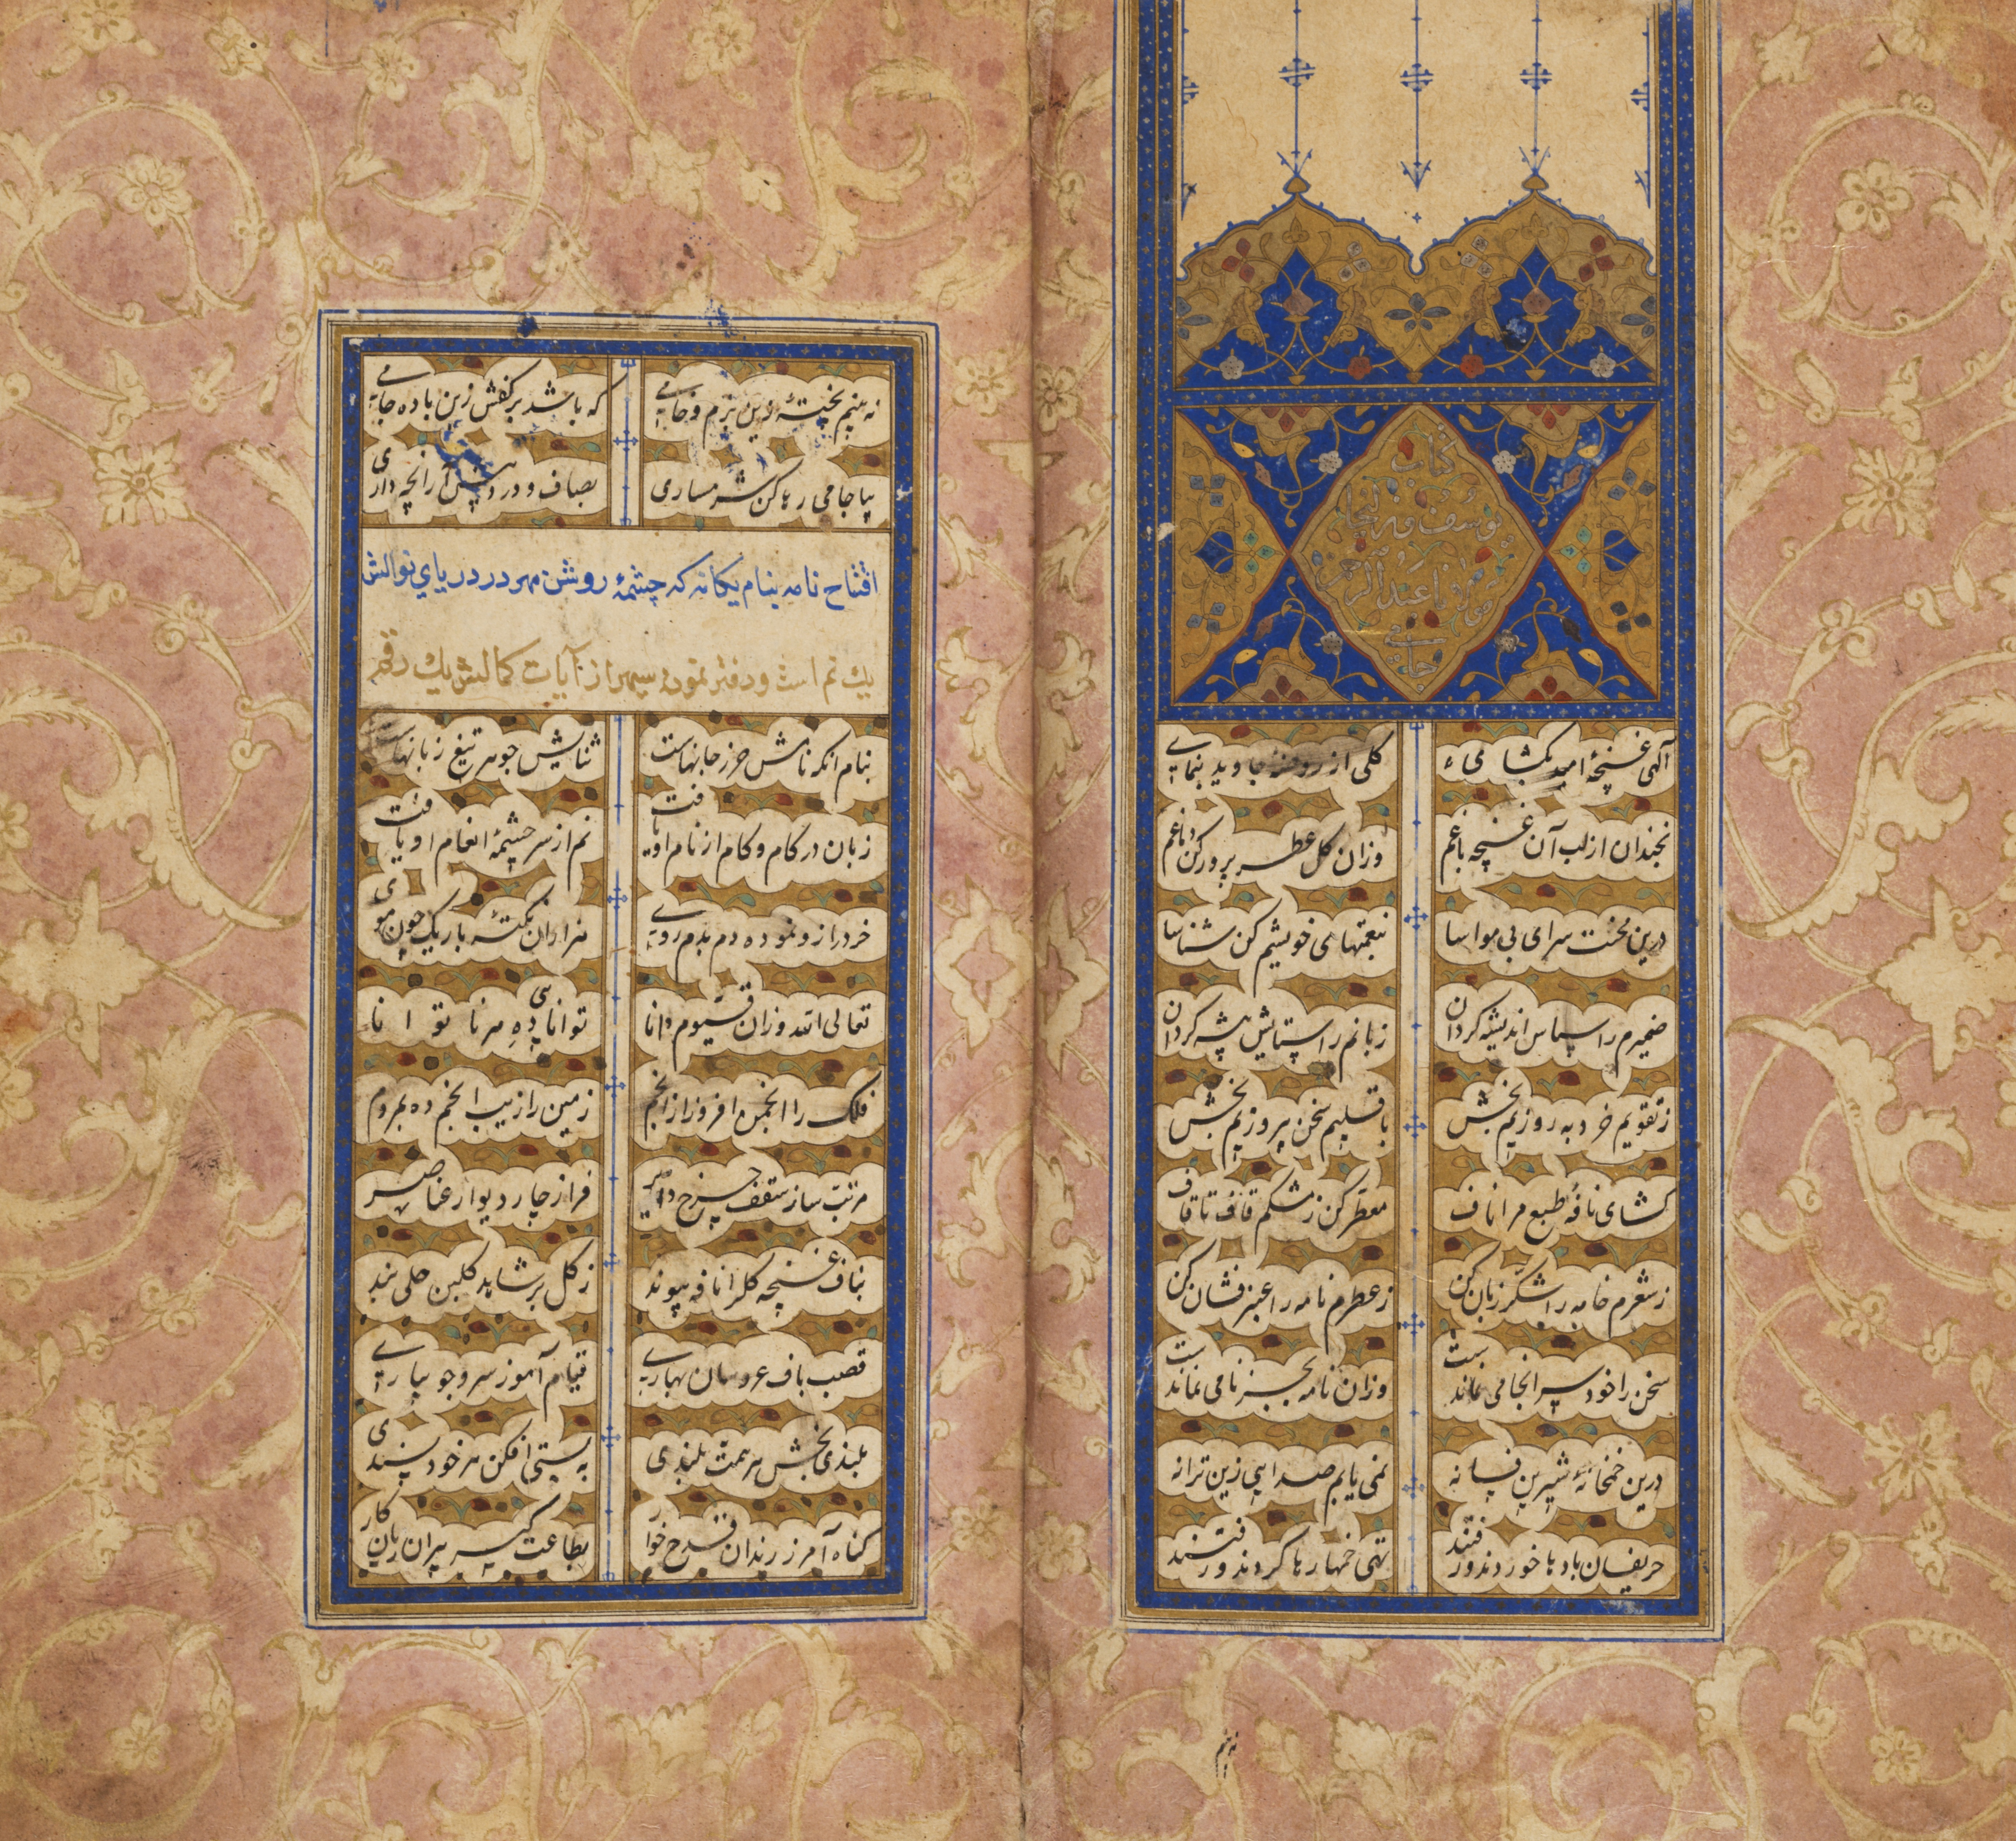 کتاب
یوسف و زلیخا
مولانا عبد الرحمن
جامی
آلهی غنچهٔ امید بکشای
کلی از روضهٔ جاوید بنمای
بخندان از لب آن غنچه باغم
وزان کل عطر پرور کن دماغم
درین محنت سرای بی مواسا
بنعمتهای خویشم کن شناسا
ضمیرم را سپاس اندیشه کردان
زبانم را ستایش پیشه کردان
ز تقویم خرد به روزیم بخش
باقلیم سخن پیروزیم بخش
کشای نافهٔ طبع مرا ناف
معطر کن ز مشکم قاف تا قاف
ز شعرم خامه را شکر زبان کن
ز عطرم نامه را عنبر فشان کن
سخن را خود سرانجامی نماندست
وزان نامه بجز نامی نماندست
درین خمخانهٔ شیرین فسانه
نمی یابم صدایی زین ترانه
حریفان بادها خوردند و رفتند
تهی خمها رها کردند و رفتند
نه بینم
نه بینم پختهٔ این بزم و خامی
که باشد بر کفش زین باده جامی
بیا جامی رها کن شرمساری
بصاف و درد پیش آر آنچه داری
افتتاح نامه بنام یکانهٔ که چشمهٔ روشن مهر در دریای نوالش
یک نم است و دفتر نمودهٔ سپهر از آیات کمالش یک رقم
بنام آنکه نامش حرز جانهاست
ثنایش جوهر تیغ زبانهاست
زبان در کام و کام از نام او یافت
نم از سر چشمهٔ انعام او یافت
خرد را زو نموده دم بدم روی
هزاران نکتهٔ باریک چون موی
تعالی الله وزان قیوم دانا
توانایی ده هر ناتوانا
فلک را انجمن افروز از انجم
زمین را زیب انجم ده بمردم
مرتب ساز سقف چرخ دایر
فراز چار دیوار عناصر
بناف غنچه کل را نافه پیوند
ز کل بر شاهد کلبن حلی بند
قصب باف عروسان بهاری
قیام آموز سرو جویباری
بلندی بخش هر همت بلندی
به پستی افکن هر خود پسندی
کناه آمرز رندان قدح خوار
بطاعت کیر پیران ریا کار